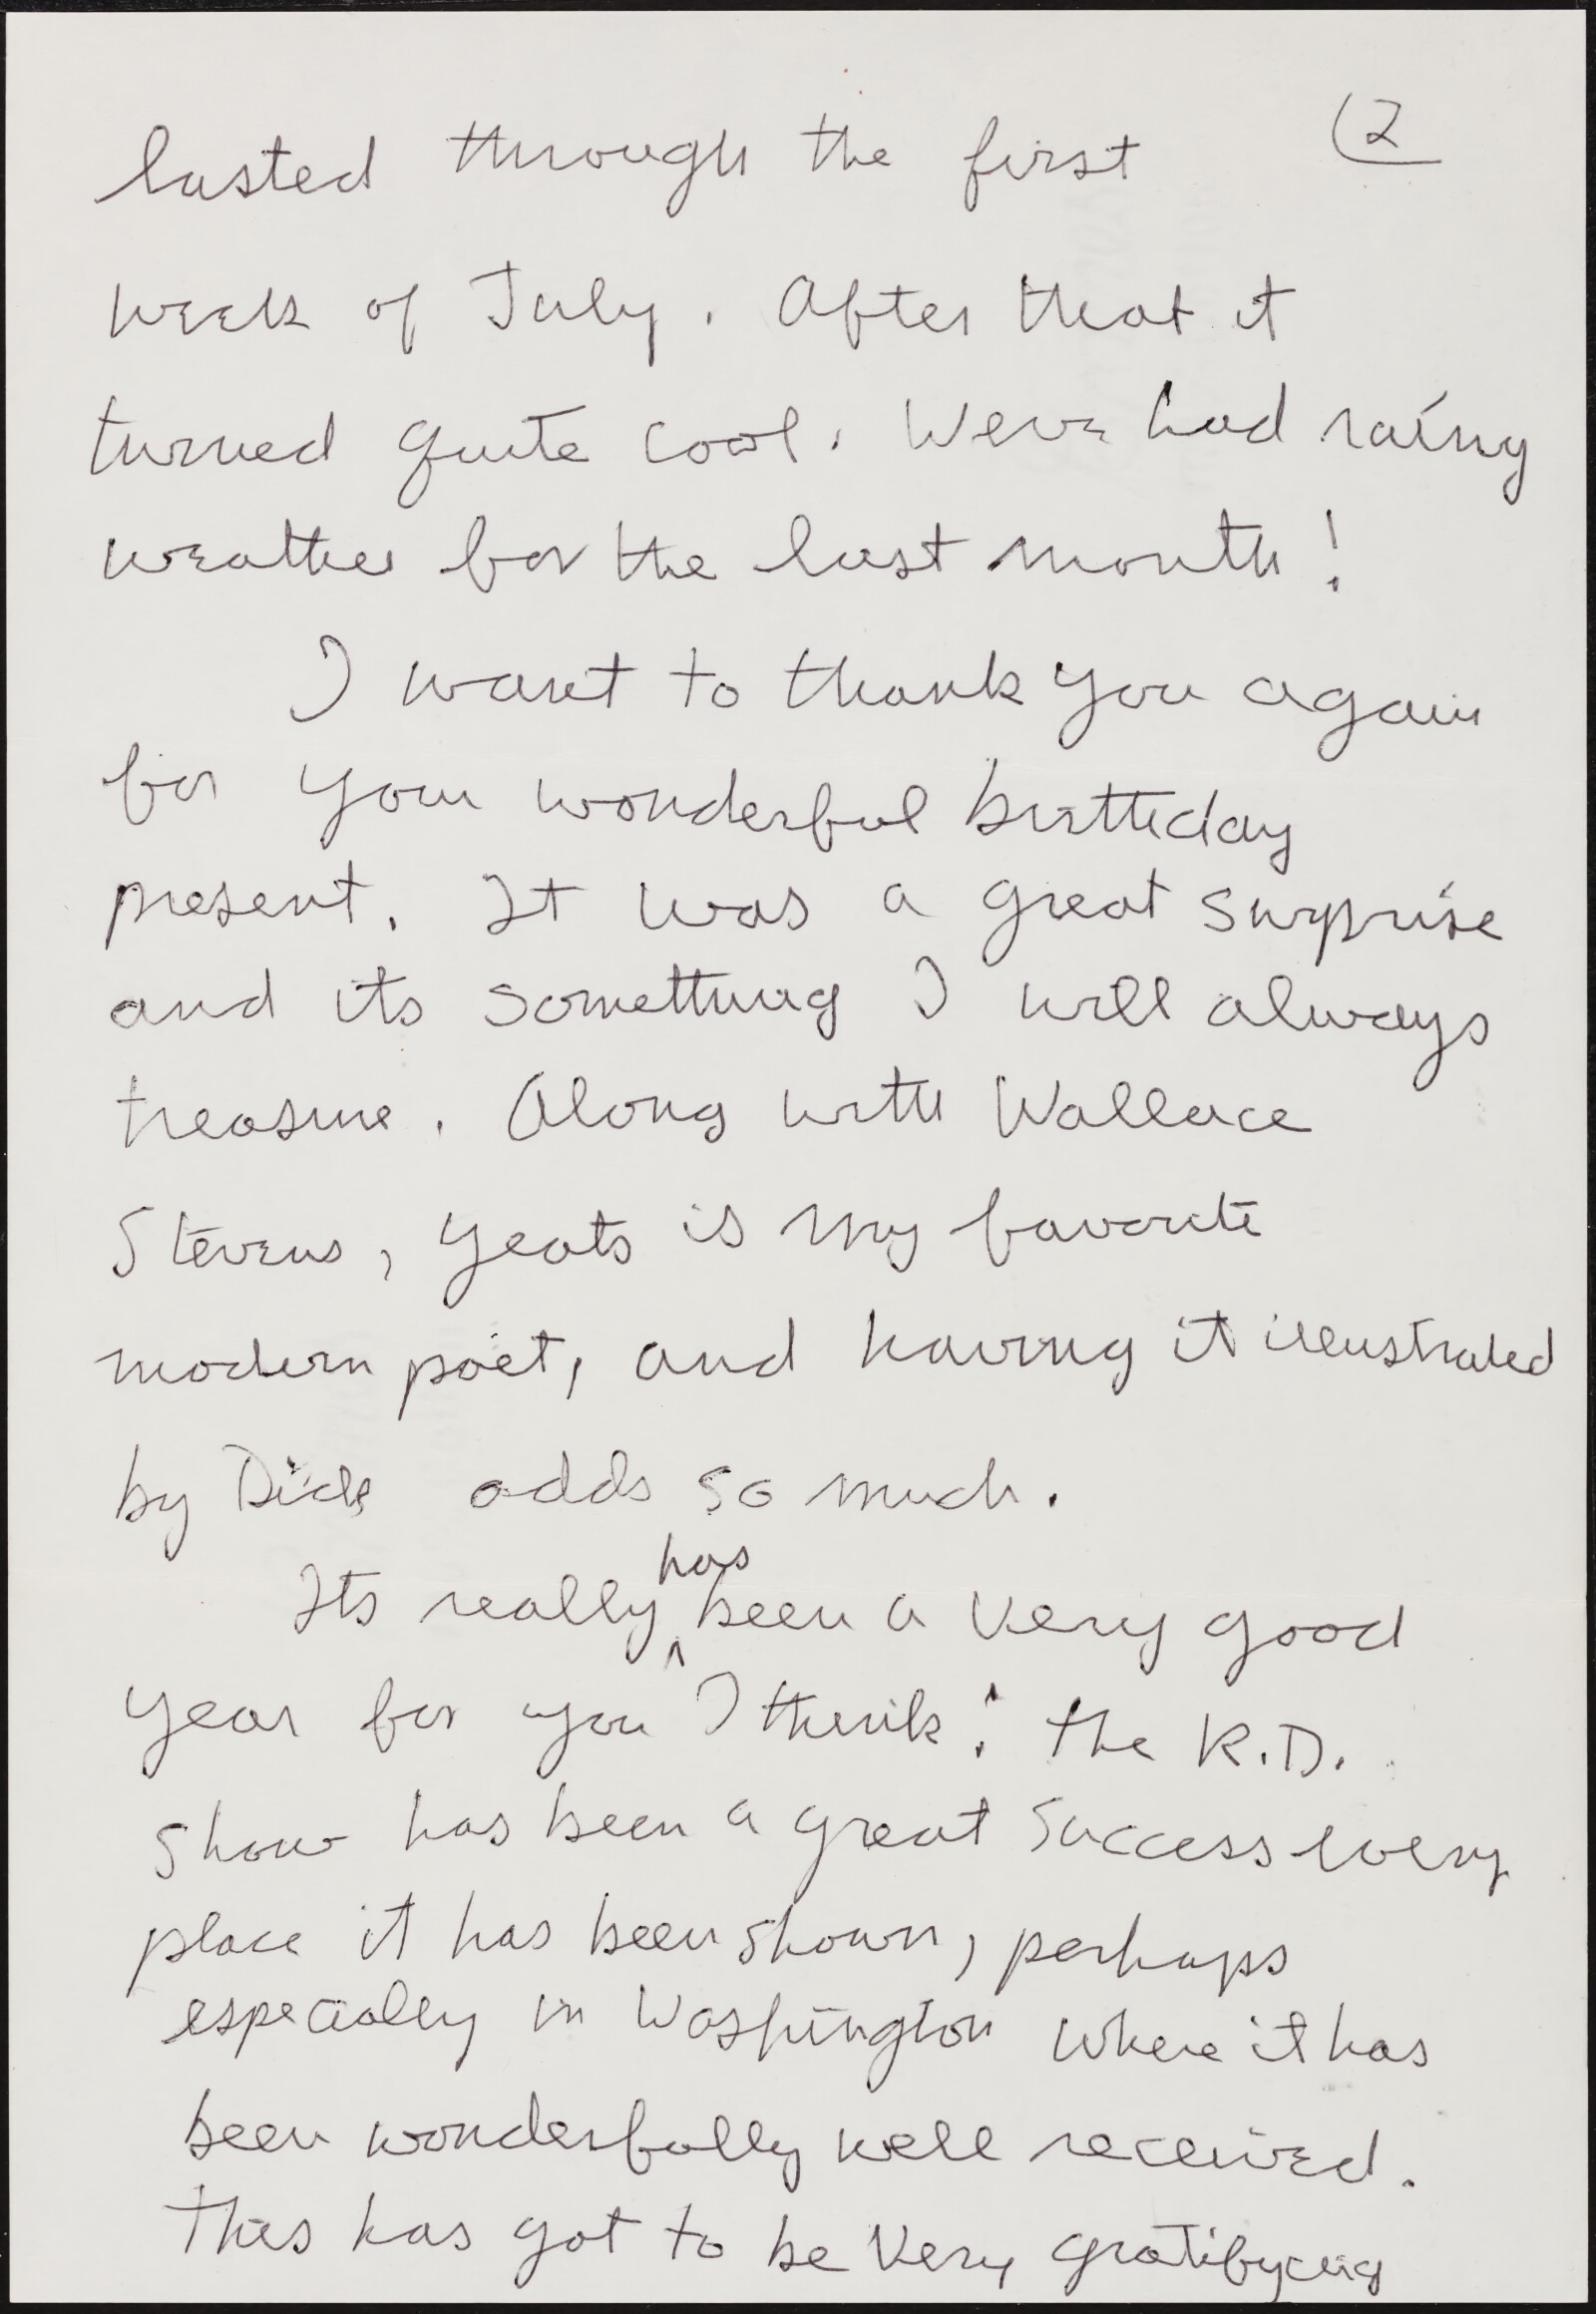 (2
lasted through the first
week of July. After that it
turned quite cool. Weve had rainy
weather for the last month!
I want to thank you again
for your wonderful birthday
present. It was a great surprise
and its something I will always
treasure. Along with Wallace
Stevens, Yeats is my favorite
modern poet, and having it illustrated
by Dick adds so much.
Its really has been a very good
year for you I think: the R.D.
show has been a great success every
place it has been shown, perhaps
especially in Washington where it has
been wonderfully well received.
This has got to be very gratifying